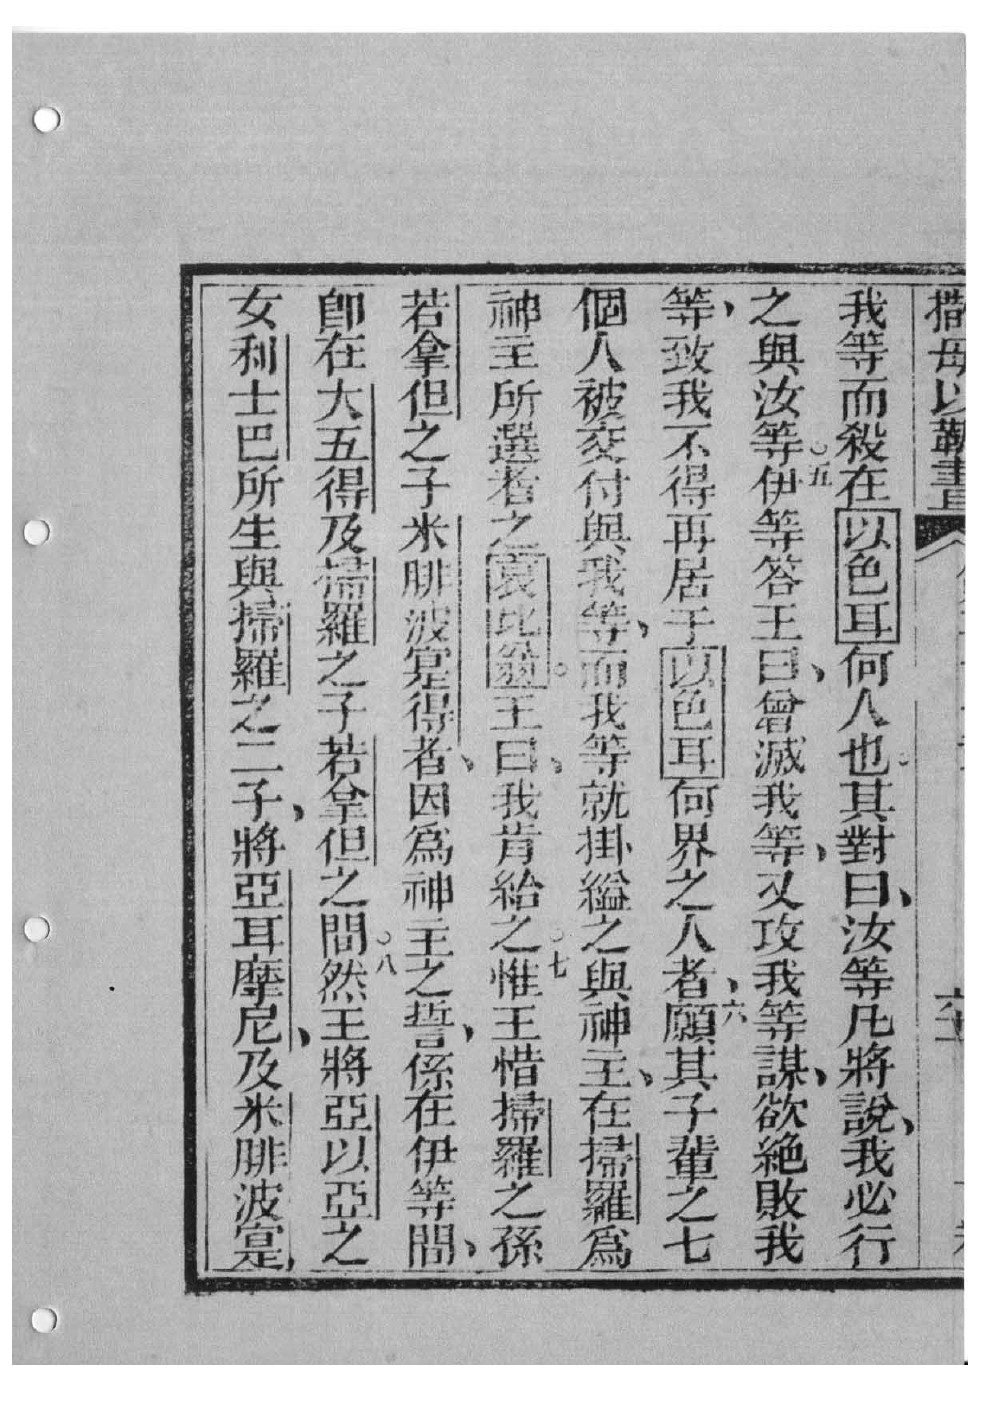 撒母以勒書
我等而殺在以色耳何人也。其對曰、汝等凡將說、我必行
之與汝等○五伊等答王曰、曾滅我等、又攻我等謀、欲絶敗我
等、致我不得再居于以色耳何界之人者、六願其子輩之七
個人被交付與我等、而我等就掛縊之與神主、在掃羅爲
神主所選者之 比 。王曰、我肯給之○七惟王惜掃羅之孫
若拿但之子米腓波寔得者、因爲神主之誓、係在伊等間、
卽在大五得及掃羅之子若拿但之間○八然王將亞以亞之
女利士巴所生與掃羅之二子、將亞耳摩尼、及米腓波寔、